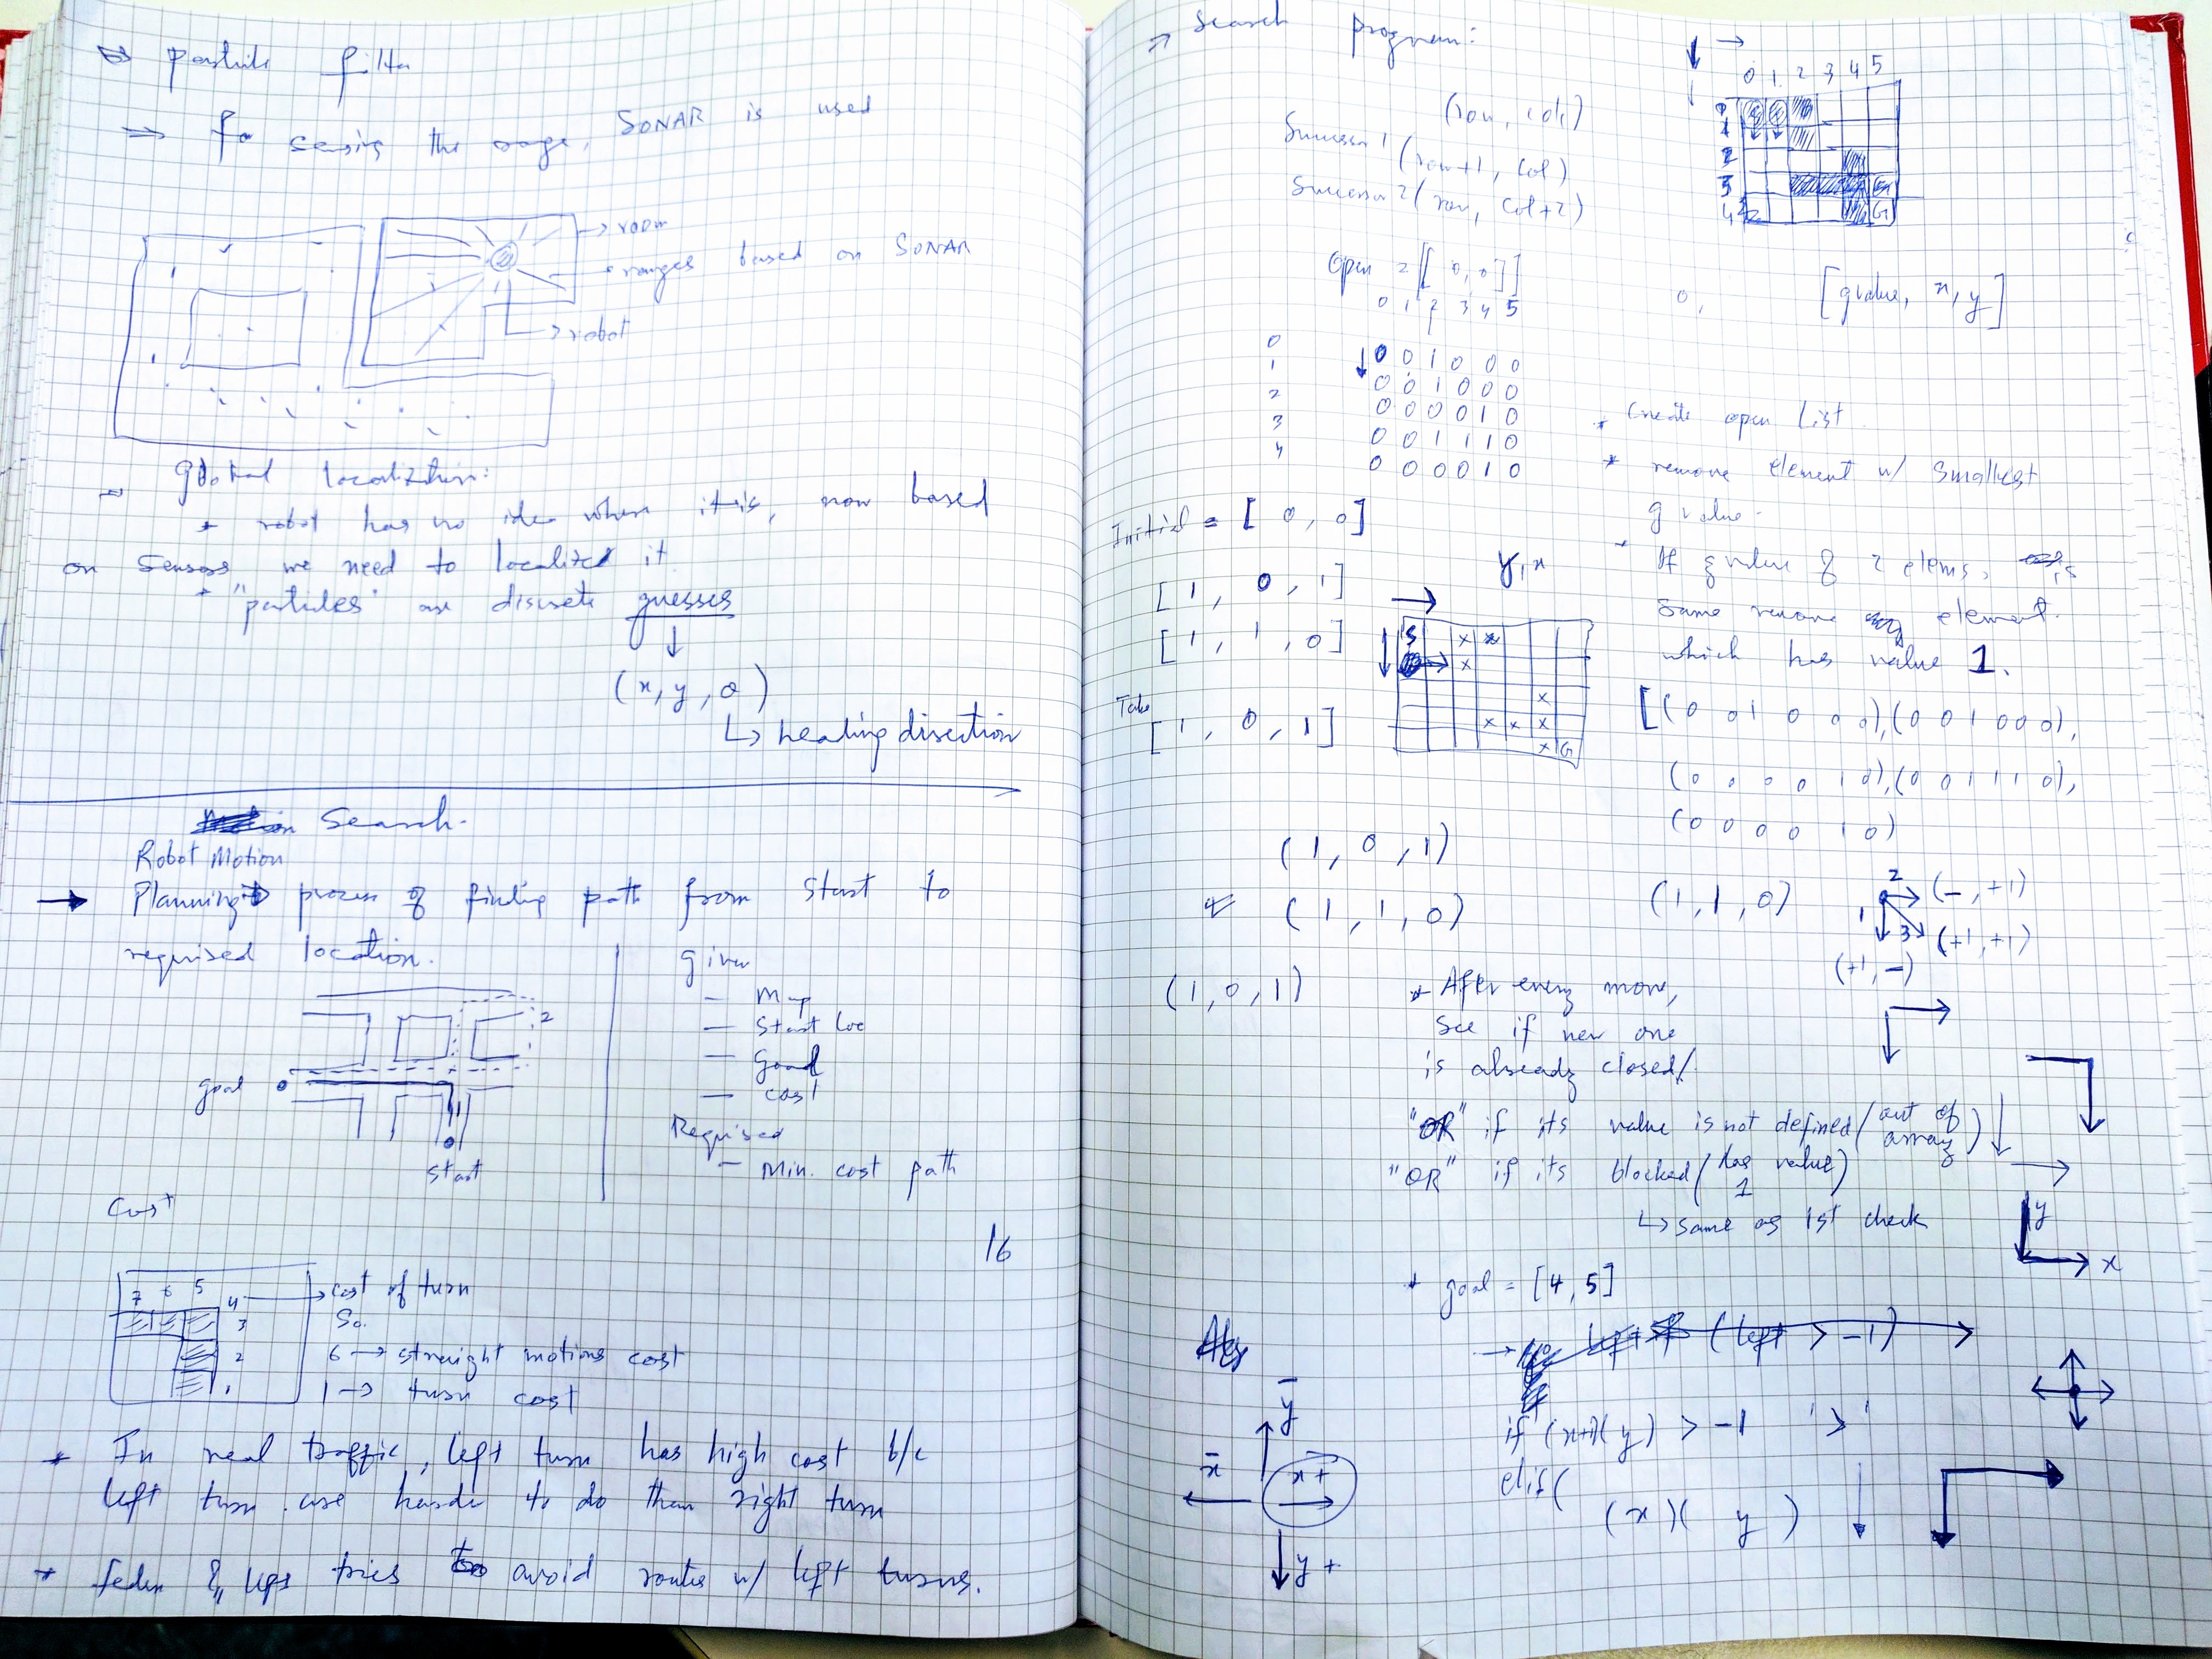 Particle filter
⇒ for sensing the range, SONAR is used
→ room
→ ranges based on SONAR
→ robot
→ global localization:
* robot has no idea where it is, now based
on sensors we need to localized it
* "particles" are discrete guesses
↓
(x, y, θ)
↳ heading direction
Search.
Robot Motion
→ Planning → process of finding path from start to
required location.
2
goal
start
given
- Map
- Start loc
- goal
- cost
Required
- Min. cost path
Cost
16
7 6 5 4 → cost of turn
3 So.
2 6 → straight motions cost
1 1 → turn cost
* In real traffic, left turn has high cost b/c
left turn are harder to do than right turn
* fedex & ups tries to avoid routes w/ left turns.
→ Search program:
(row, col)
Successor 1 (row+1, col)
Successor 2 (row, col+2)
0 1 2 3 4 5
0
1
2
3
4
G
open = [[0, 0]]
0, [g value, x, y]
0 1 2 3 4 5
0
1
2
3
4
0 0 1 0 0 0
0 0 1 0 0 0
0 0 0 0 1 0
0 0 1 1 1 0
0 0 0 0 1 0
* Create open list
* remove element w/ smallest
g value.
* If g value of 2 elems. is
same remove element.
which has value 1.
Initial = [0, 0]
[1, 0, 1]
[1, 1, 0]
Take
[1, 0, 1]
y, x
S x x
x
x
x x x
x G
[(0 0 1 0 0 0),(0 0 1 0 0 0),
(0 0 0 0 1 0),(0 0 1 1 1 0),
(0 0 0 0 1 0)
(1, 0, 1)
(1, 1, 0)
(1, 1, 0)
2 (-, +1)
1
3 (+1, +1)
(+1, -)
(1, 0, 1)
* After every move,
see if new one
is already closed/
"OR" if its value is not defined (out of array)
"OR" if its blocked (has value 1)
↳ same as 1st check
y
x
* goal = [4, 5]
→ (left > -1)
if (x+1)(y) > -1 '>'
elif(
(x)( y )
y̅
x̅
x+
y+